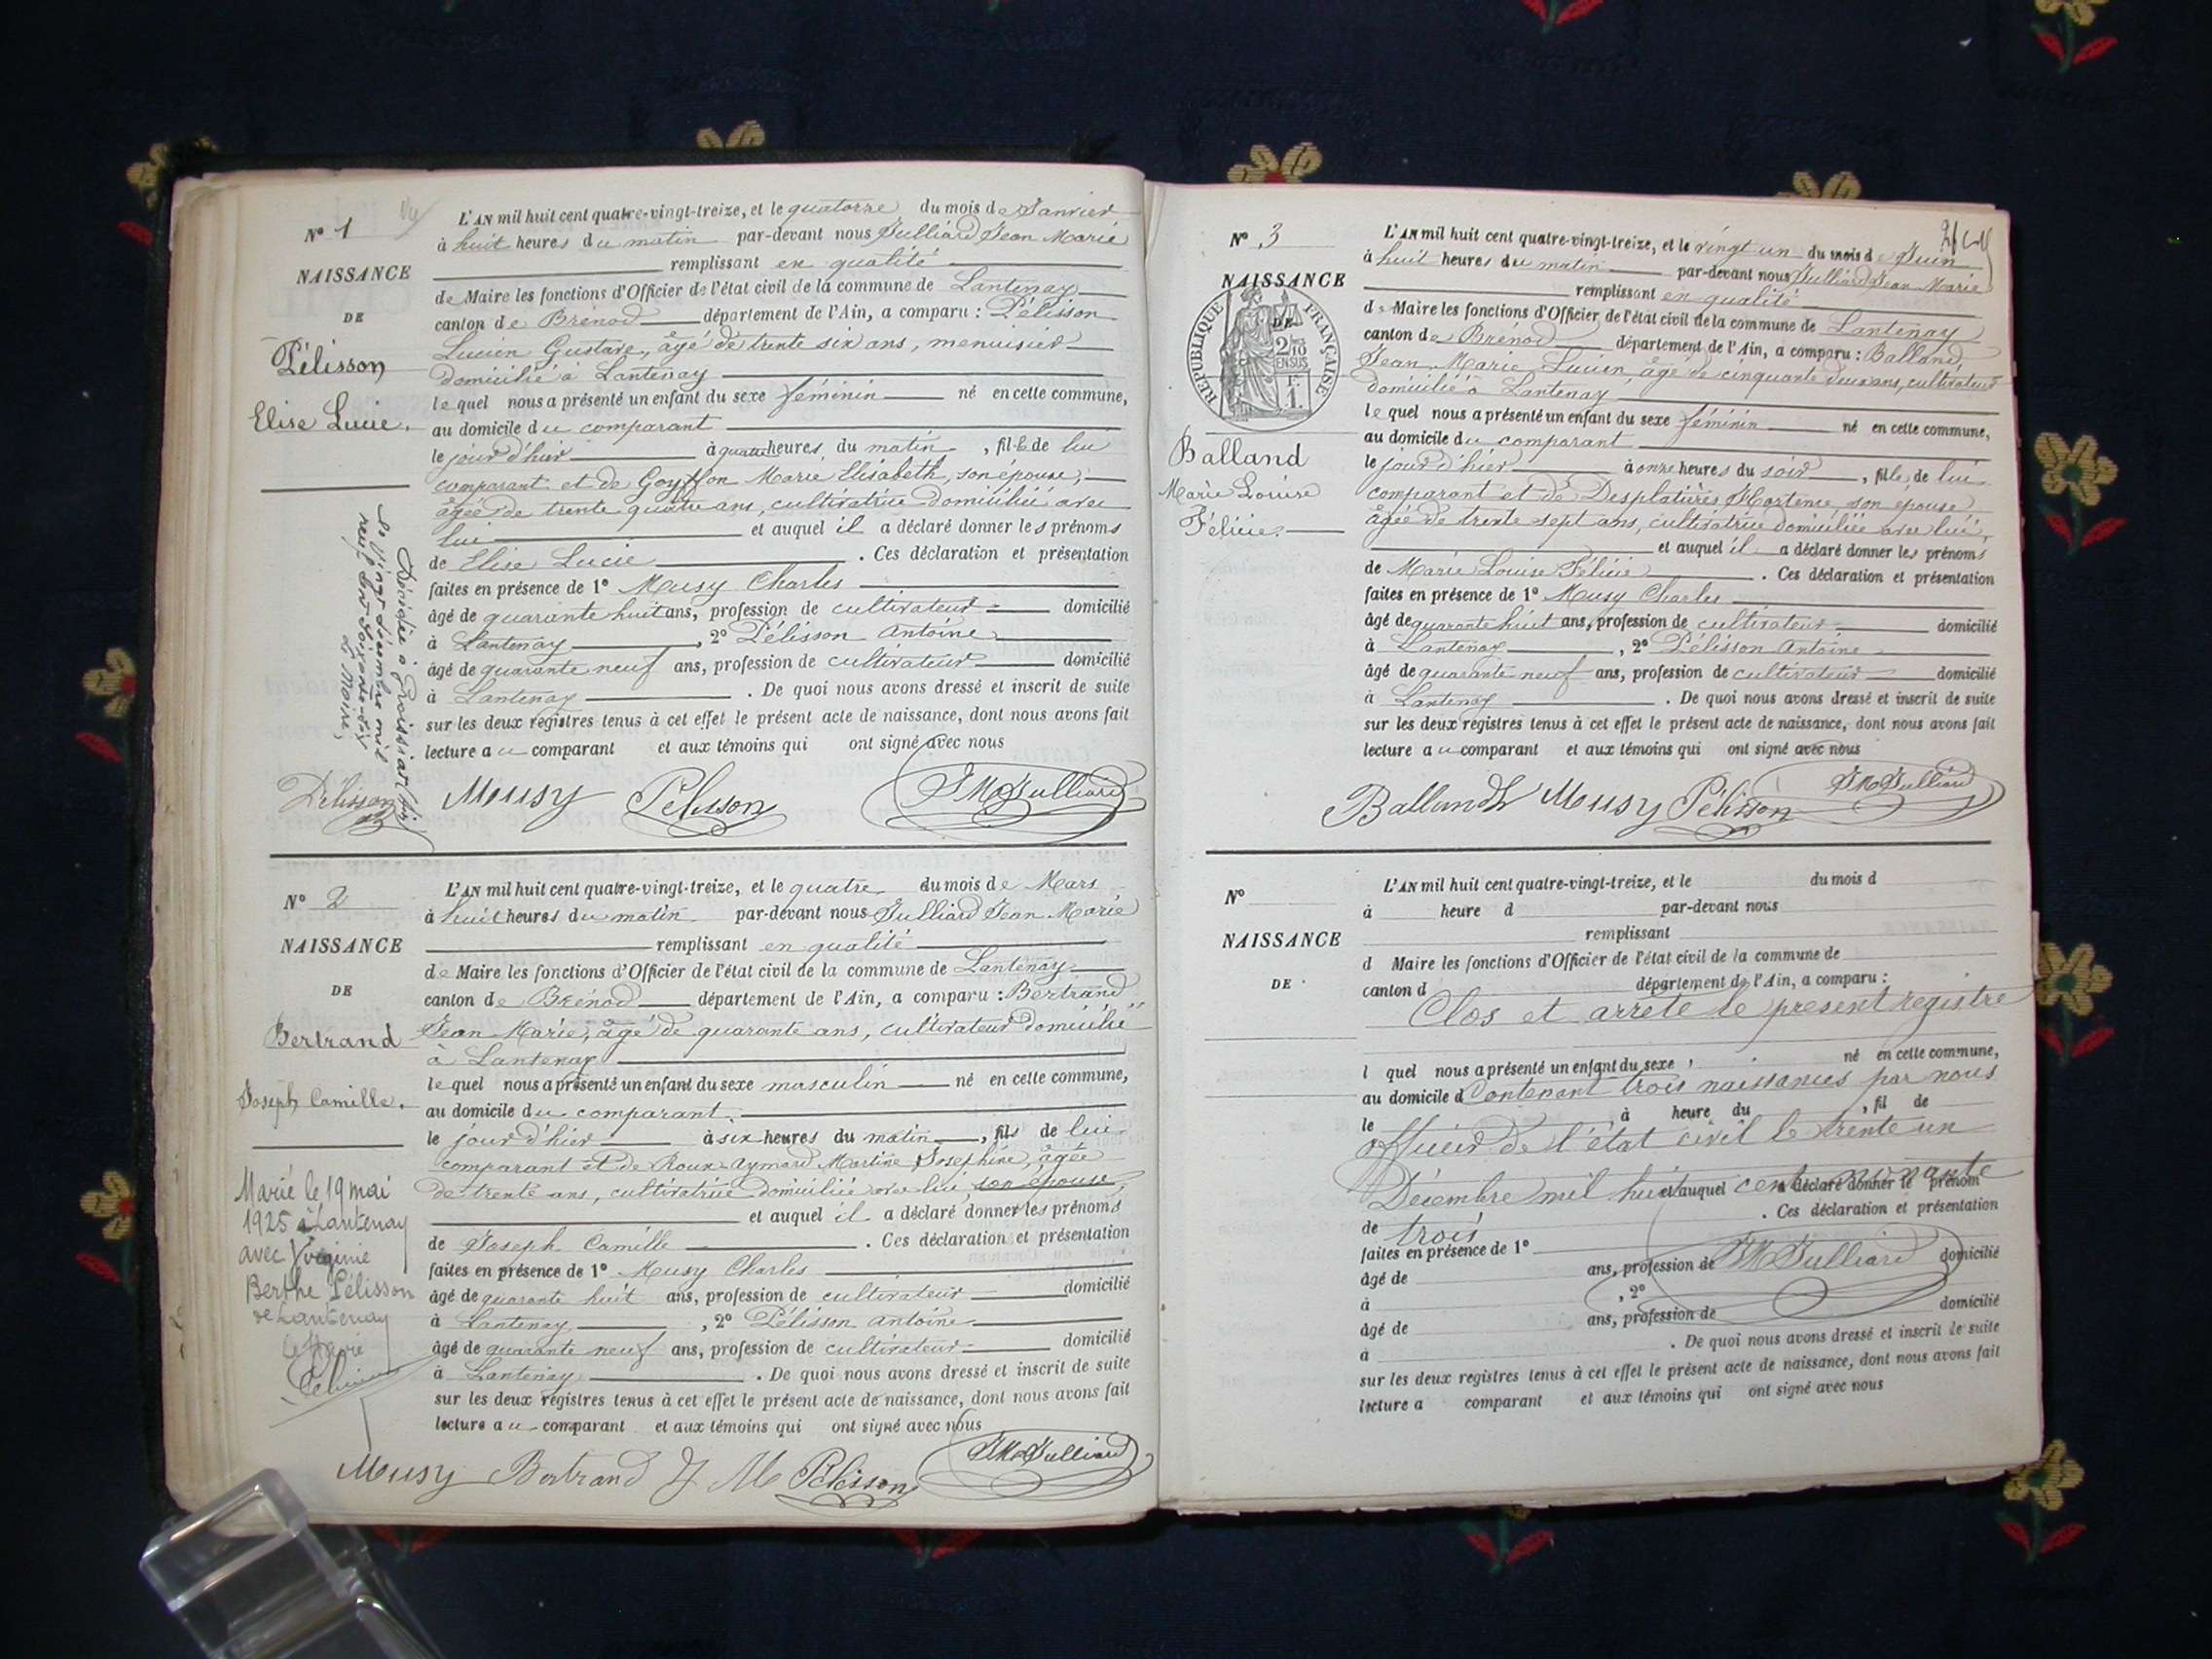 N° 1
NAISSANCE
DE
Pélisson
Elise Lucie.
Décédée à Groissiat (Ain)
le vingt décembre mil
neuf cent soixante-six
Le Maire,
L'AN mil huit cent quatre-vingt-treize, et le quatorze du mois de Janvier
à huit heures du matin par-devant nous Julliard Jean Marie
remplissant en qualité
de Maire les fonctions d'Officier de l'état civil de la commune de Lantenay
canton de Brénod département de l'Ain, a comparu : Pélisson
Lucien Gustave, âgé de trente six ans, menuisier
domicilié à Lantenay
lequel nous a présenté un enfant du sexe féminin né en cette commune,
au domicile du comparant
le jour d'hier à quatre heures du matin, fille de lui
comparant et de Goyffon Marie Elisabeth, son épouse,
âgée de trente quatre ans, cultivatrice domiciliée avec
lui et auquel il a déclaré donner les prénoms
de Elise Lucie . Ces déclaration et présentation
faites en présence de 1° Musy Charles
âgé de quarante huit ans, profession de cultivateur domicilié
à Lantenay, 2° Pélisson Antoine
âgé de quarante neuf ans, profession de cultivateur domicilié
à Lantenay . De quoi nous avons dressé et inscrit de suite
sur les deux registres tenus à cet effet le présent acte de naissance, dont nous avons fait
lecture au comparant et aux témoins qui ont signé avec nous
Pélisson Musy Pélisson JM Julliard
N° 2
NAISSANCE
DE
Bertrand
Joseph Camille.
Marié le 19 mai
1925 à Lantenay
avec Virginie
Berthe Pélisson
de Lantenay
L'AN mil huit cent quatre-vingt-treize, et le quatre du mois de Mars
à huit heures du matin par-devant nous Julliard Jean Marie
remplissant en qualité
de Maire les fonctions d'Officier de l'état civil de la commune de Lantenay
canton de Brénod département de l'Ain, a comparu : Bertrand
Jean Marie, âgé de quarante ans, cultivateur domicilié
à Lantenay
lequel nous a présenté un enfant du sexe masculin né en cette commune,
au domicile du comparant
le jour d'hier à six heures du matin, fils de lui
comparant et de Roux-Aymard Martine Josephine, âgée
de trente ans, cultivatrice domiciliée avec lui, son épouse,
et auquel il a déclaré donner les prénoms
de Joseph Camille . Ces déclaration et présentation
faites en présence de 1° Musy Charles
âgé de quarante huit ans, profession de cultivateur domicilié
à Lantenay, 2° Pélisson Antoine
âgé de quarante neuf ans, profession de cultivateur domicilié
à Lantenay . De quoi nous avons dressé et inscrit de suite
sur les deux registres tenus à cet effet le présent acte de naissance, dont nous avons fait
lecture au comparant et aux témoins qui ont signé avec nous
Musy Bertrand J M Pélisson JM Julliard
N° 3
NAISSANCE
DE
REPUBLIQUE FRANÇAISE
2/10 EN SUS
F. 1.
Balland
Marie Louise
Félicie.
L'AN mil huit cent quatre-vingt-treize, et le vingt un du mois de Juin
à huit heures du matin par-devant nous Julliard Jean Marie
remplissant en qualité
de Maire les fonctions d'Officier de l'état civil de la commune de Lantenay
canton de Brénod département de l'Ain, a comparu : Balland
Jean Marie Lucien âgé de cinquante deux ans, cultivateur
domicilié à Lantenay
lequel nous a présenté un enfant du sexe féminin né en cette commune,
au domicile du comparant
le jour d'hier à onze heures du soir, fille de lui
comparant et de Desplatières Hortence son épouse
âgée de trente sept ans, cultivatrice domiciliée avec lui,
et auquel il a déclaré donner les prénoms
de Marie Louise Félicie . Ces déclaration et présentation
faites en présence de 1° Musy Charles
âgé de quarante huit ans, profession de cultivateur domicilié
à Lantenay, 2° Pélisson Antoine
âgé de quarante neuf ans, profession de cultivateur domicilié
à Lantenay . De quoi nous avons dressé et inscrit de suite
sur les deux registres tenus à cet effet le présent acte de naissance, dont nous avons fait
lecture au comparant et aux témoins qui ont signé avec nous
Balland Musy Pélisson JM Julliard
N°
NAISSANCE
DE
L'AN mil huit cent quatre-vingt-treize, et le du mois d
à heure d par-devant nous
remplissant
d Maire les fonctions d'Officier de l'état civil de la commune de
canton d département de l'Ain, a comparu :
Clos et arrêté le présent registre
l quel nous a présenté un enfant du sexe né en cette commune,
au domicile d
Contenant trois naissances par nous
le à heure du , fil de
officier de l'état civil le trente un
Décembre mil huit cent nonante
et auquel a déclaré donner le prénom
de . Ces déclaration et présentation
trois
faites en présence de 1°
JM Julliard
âgé de ans, profession de domicilié
à , 2°
âgé de ans, profession de domicilié
à . De quoi nous avons dressé et inscrit de suite
sur les deux registres tenus à cet effet le présent acte de naissance, dont nous avons fait
lecture a comparant et aux témoins qui ont signé avec nous